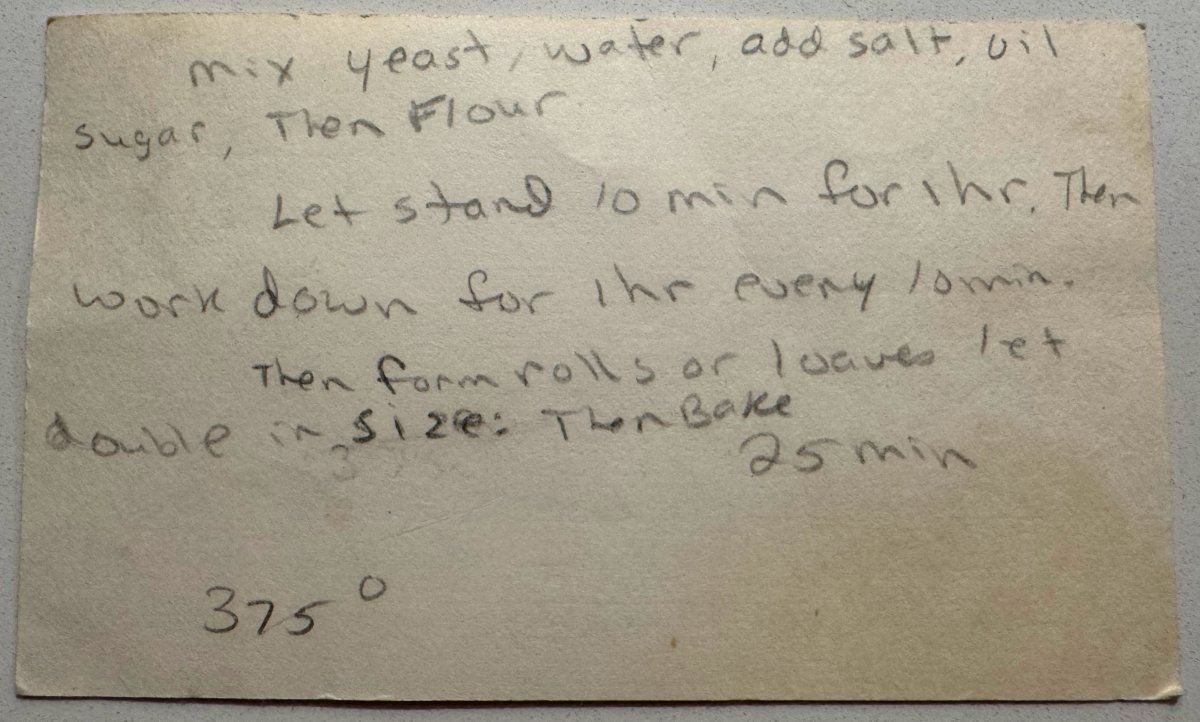 mix yeast, water, add salt, oil
sugar, Then Flour
Let stand 10 min for 1 hr. Then
work down for 1 hr every 10 min.
Then form rolls or loaves let
double in size: Then Bake
25 min
375°